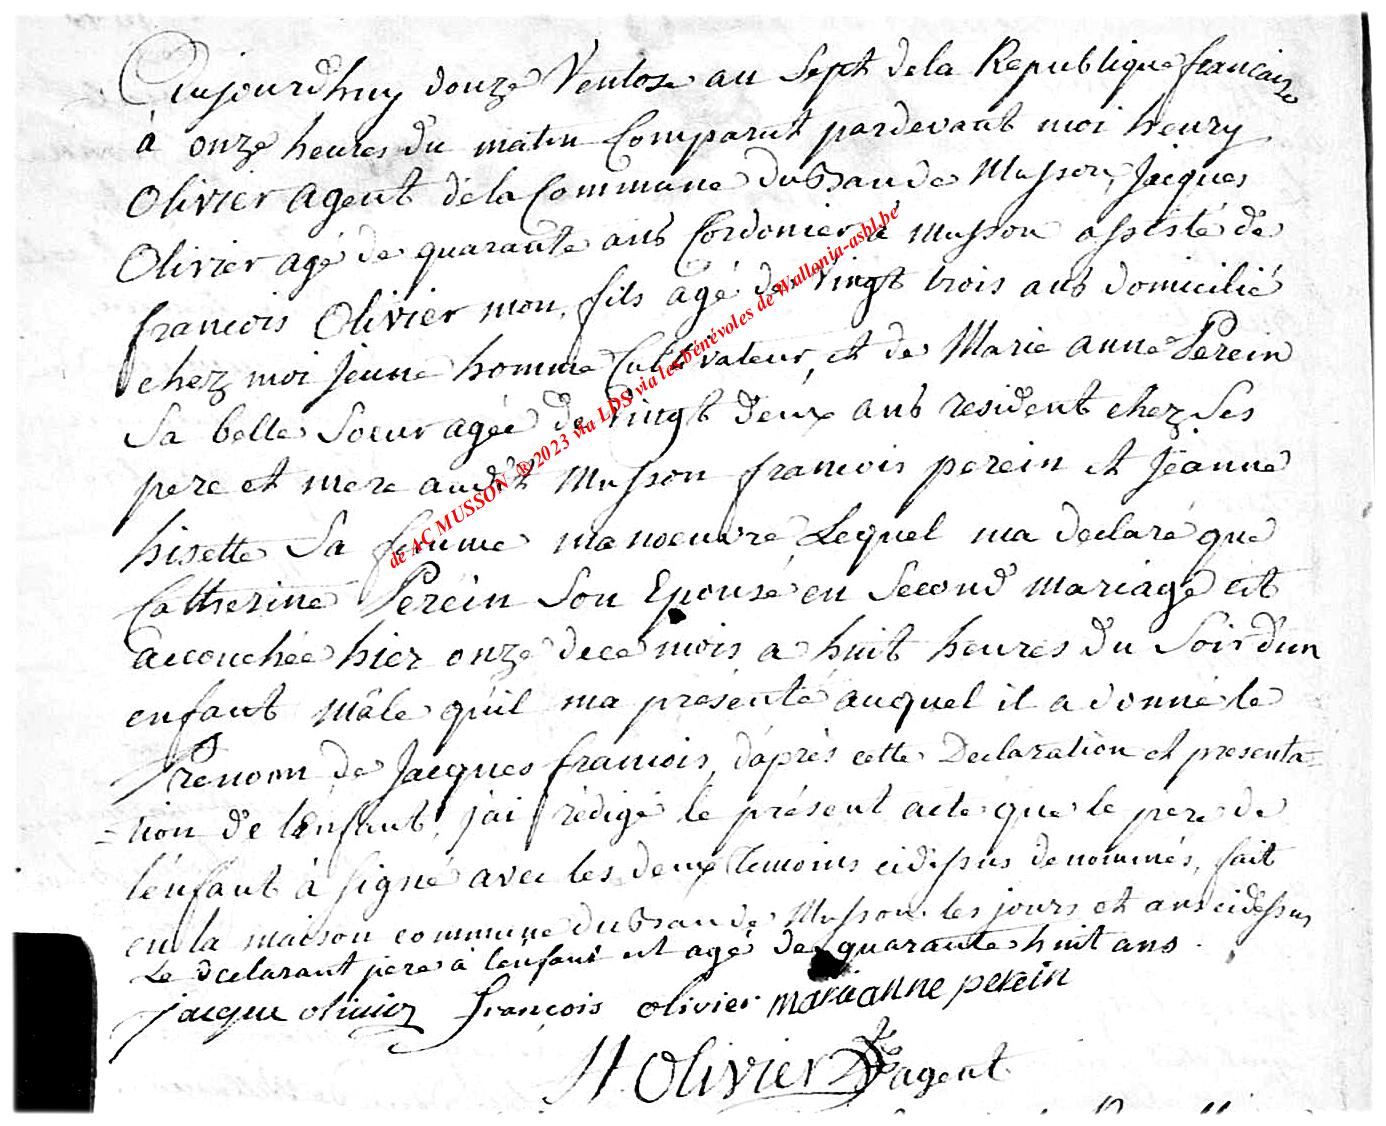 Aujourdhuy douze Ventose an Sept dela Republique francaise
à onze heures du matin Comparut pardevant moi henry
Olivier agent déla Commune du Ban de Musson, Jacques
Olivier agé de quarante ans Cordonier à Musson assisté de
francois Olivier mon fils agé de vingt trois ans domicilié
chez moi jeune homme Cultivateur, et de Marie anne Perein
Sa belle Soeur agée de vingt deux ans resident chez Ses
pere et mere audit Musson francois perein et Jeanne
hisette Sa femme manoeuvre, Lequel ma declaré que
Catherine Perein Son Epouse en Second mariage est
accouchée hier onze de ce mois a huit heures du Soir d'un
enfant mâle qu'il ma présenté auquel il a donné le
Prenom de Jacques francois, d'aprés cette Declaration et presenta=
=tion de l'enfant, j'ai rédigé le présent acte que le pere de
l'enfant à signé avec les deux temoins cidessus denommés, fait
en la maison commune du Ban de Musson les jours et an cidessus
Le declarant pere à l'enfant est agé de quarante huit ans.
jacque olivier françois olivier marie anne perein
H Olivier agent
de AC MUSSON ® 2023 via LDS via les bénévoles de Wallonia-asbl.be